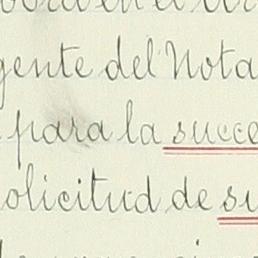 gente del Nota
para la succe
olicitud de su